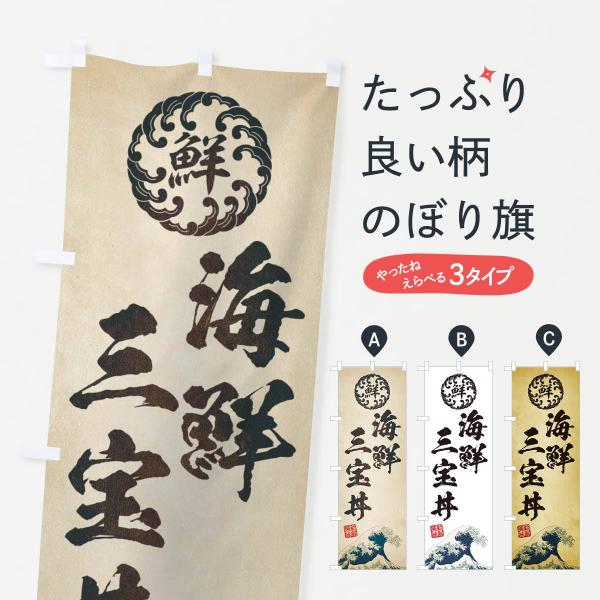 鮮
海鮮
三宝丼
たっぷり
良い柄
のぼり旗
やったね
えらべる
3タイプ
A
B
C
鮮
海鮮
三宝丼
鮮
海鮮
三宝丼
鮮
海鮮
三宝丼